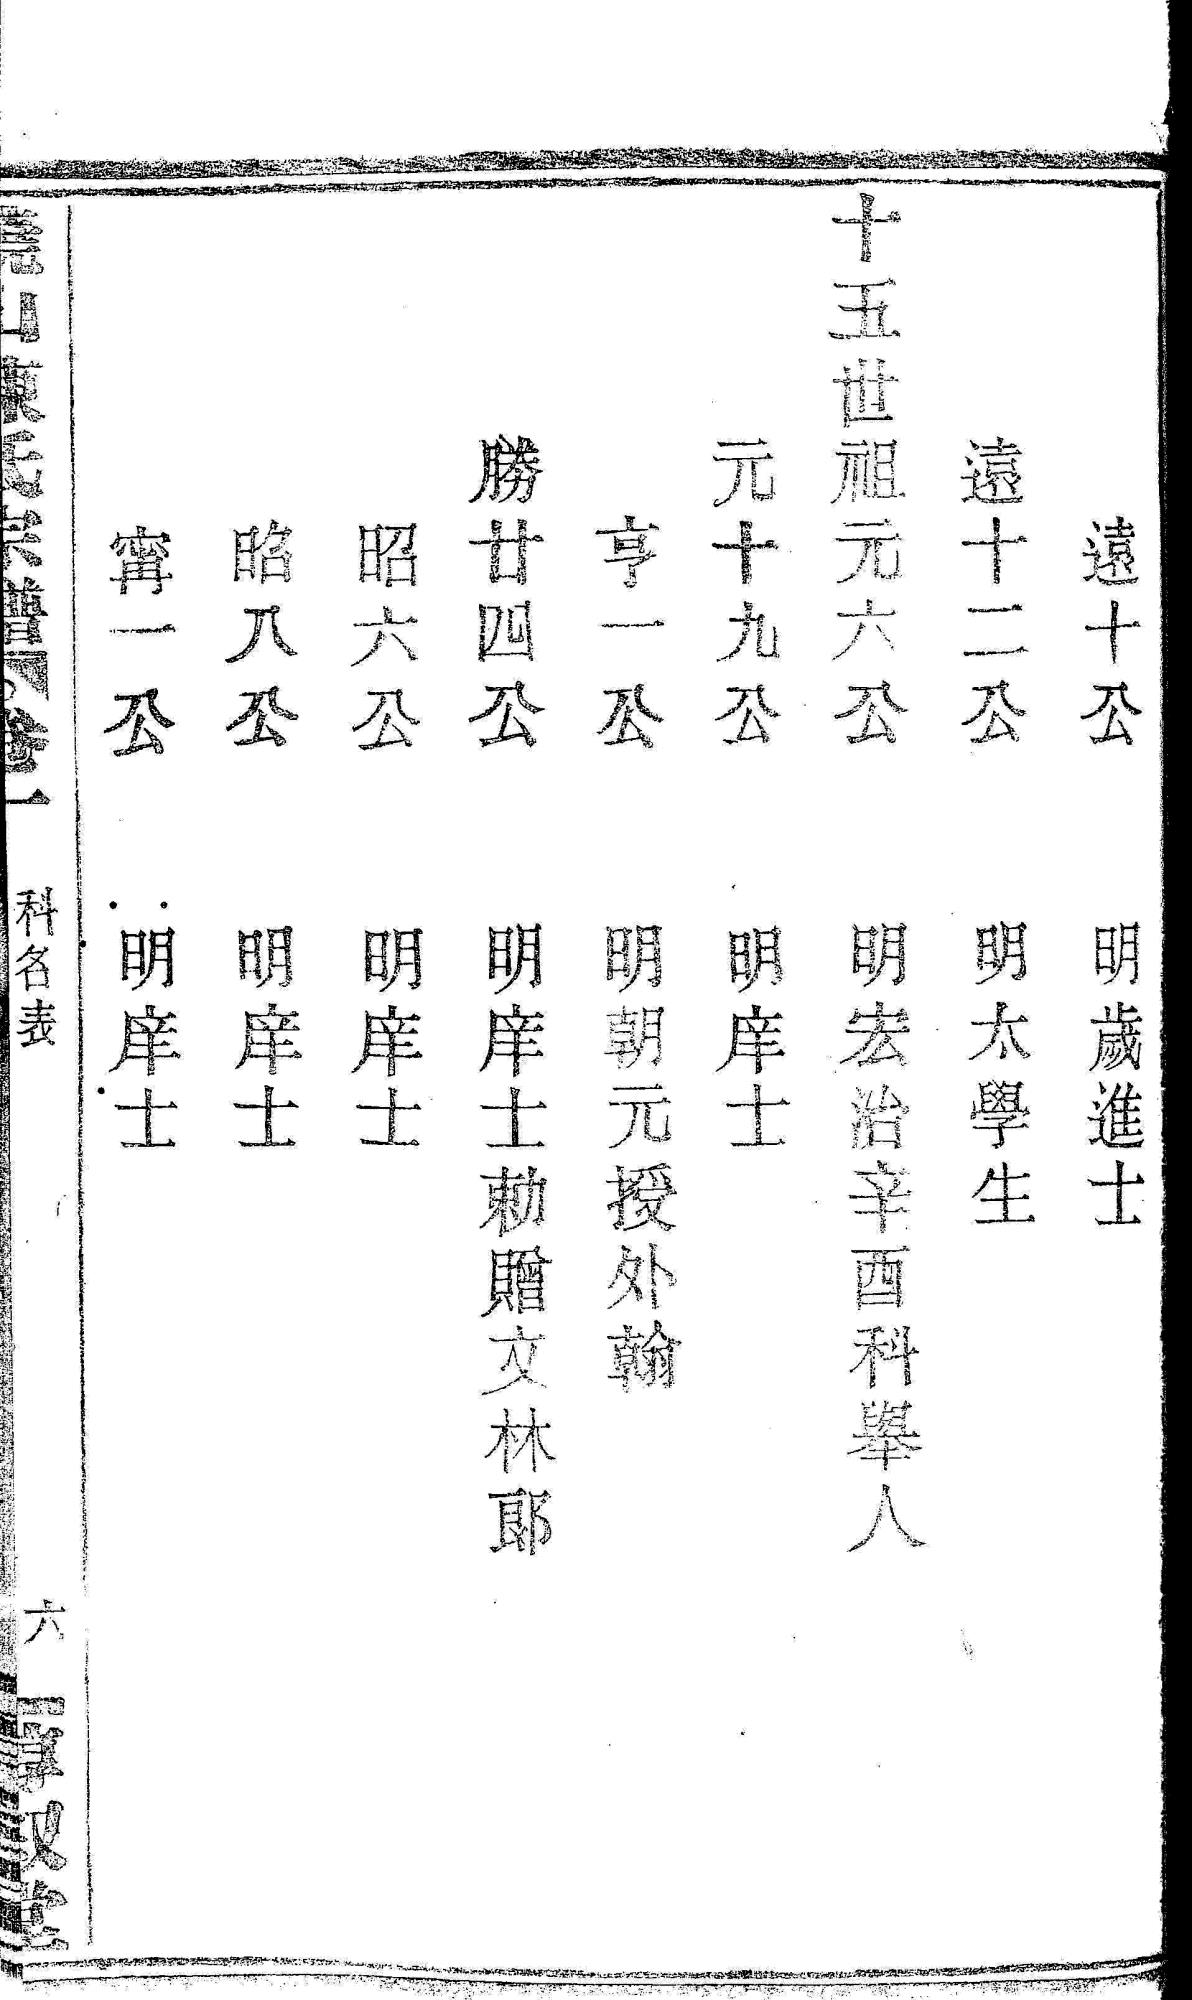 遠十公 明歲進士
遠十二公 明太學生
十五世祖元六公 明宏治辛酉科舉人
元十九公 明庠士
亨一公 明朝元授外翰
勝廿四公 明庠士勅贈文林郎
昭六公 明庠士
昭八公 明庠士
甯一公 明庠士
山陳氏宗譜 卷一 科名表 六 敘堂